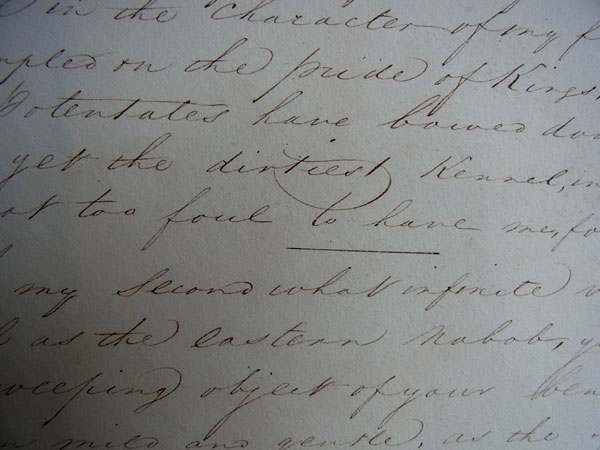 in the character of my f
mpled on the pride of Kings,
Potentates have bowed dow
yet the dirtiest Kennel, in
ot too foul to have me, fo
my second what infinite v
as the eastern Nabob, y
weeping object of your ben
mild and gentle, as the